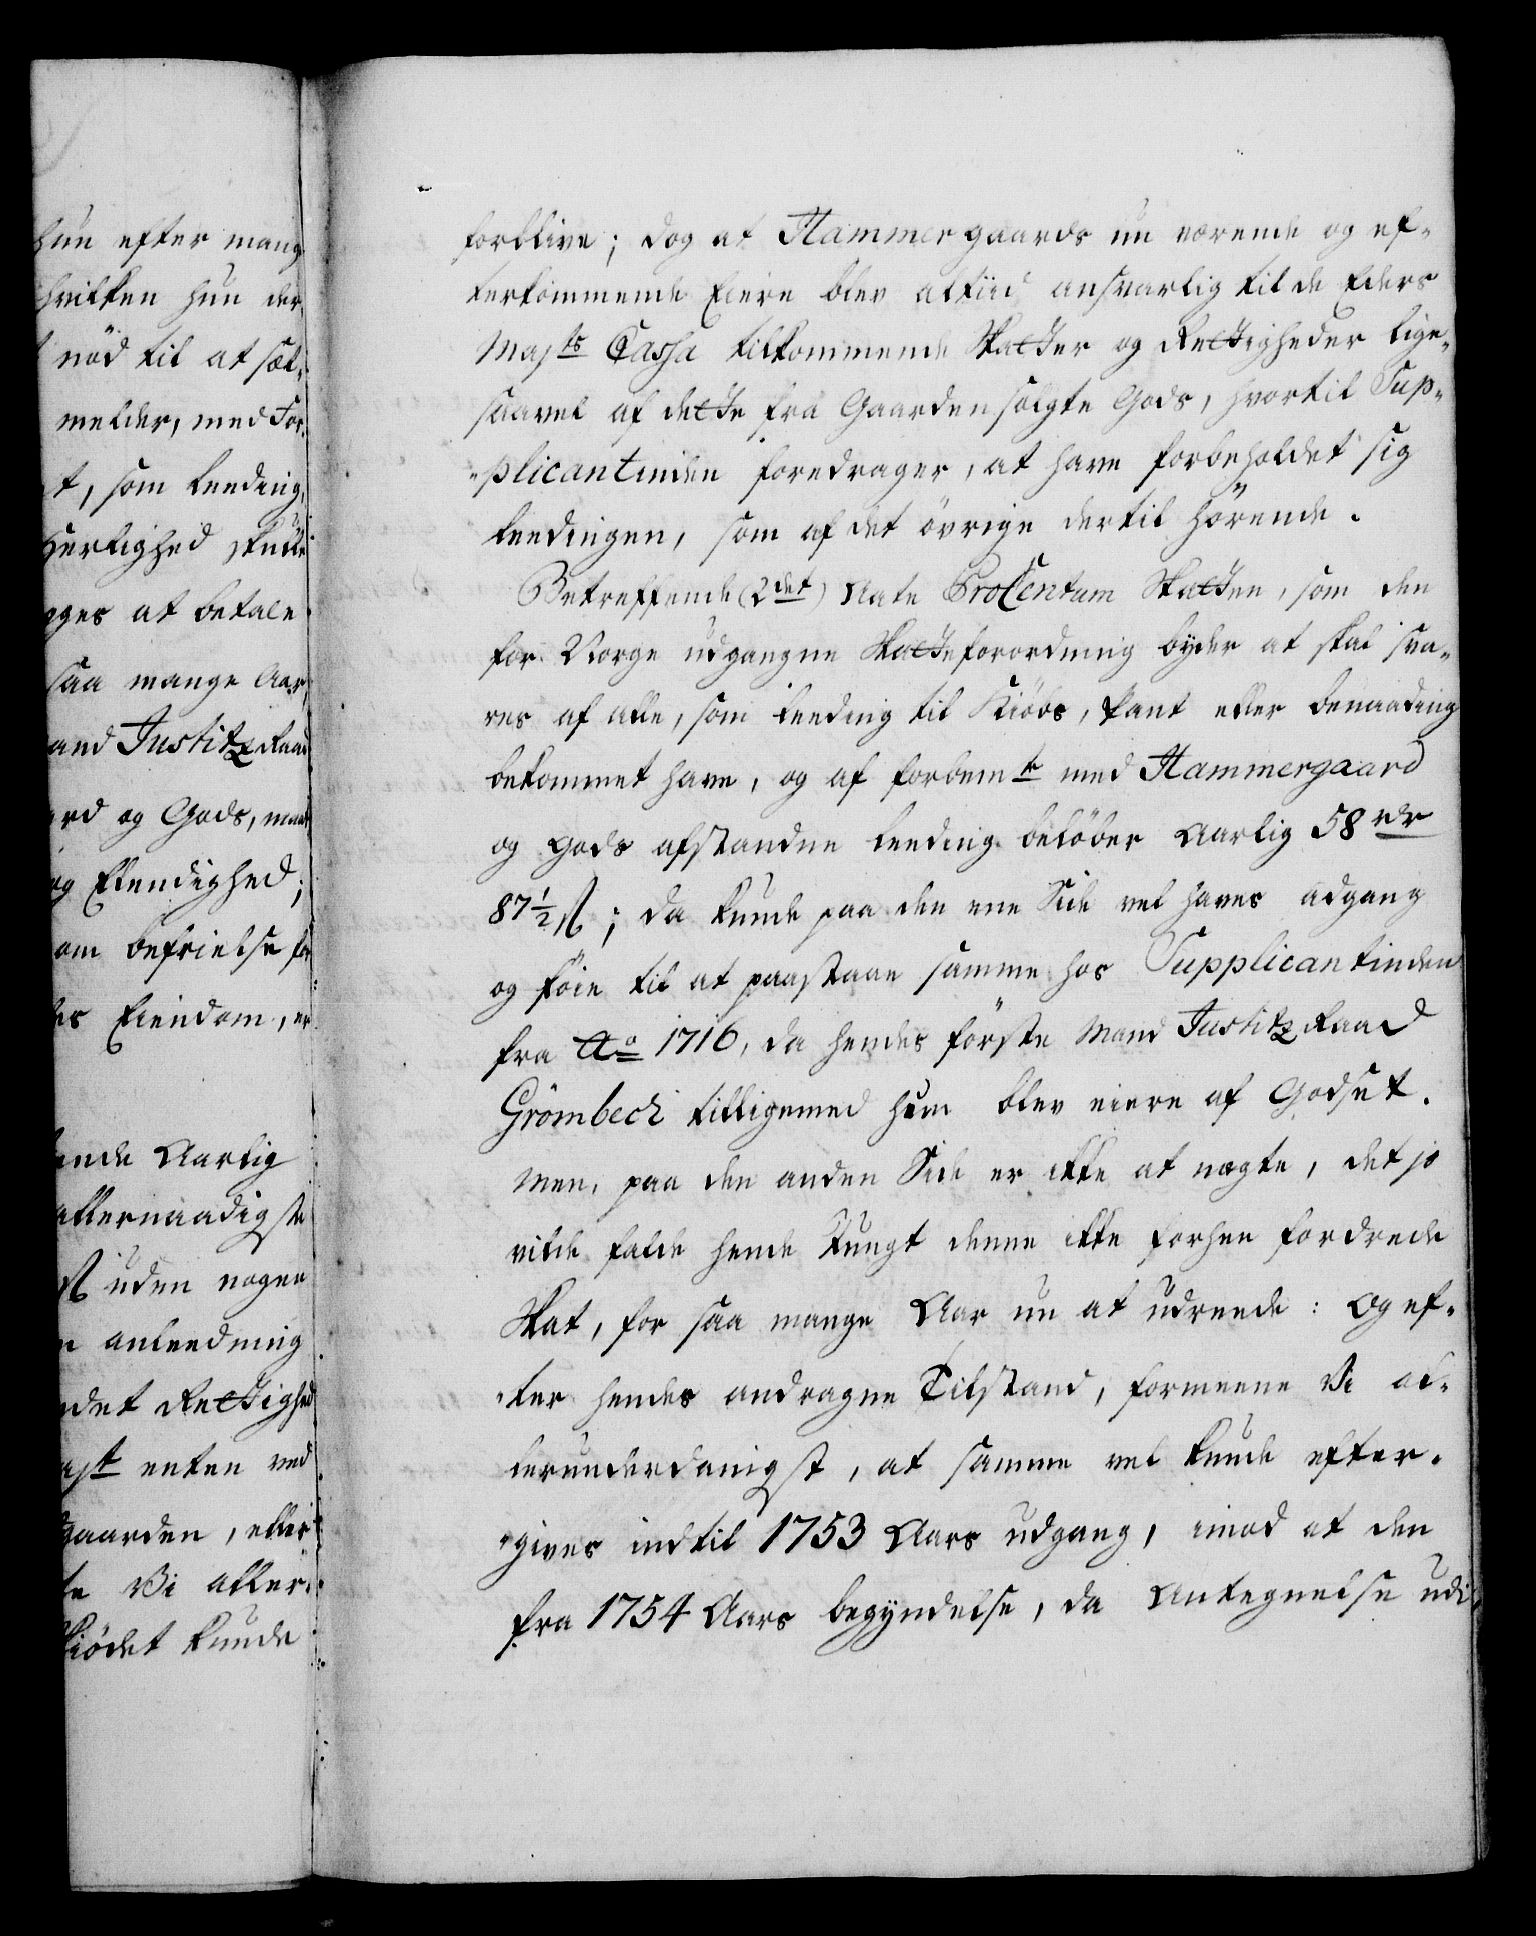 hun efter mang
hvilken hun der
nød til at sæl-
melder, med For-
t, som Leeding,
Herlighed skulle
gges at betale
saa mange Aar,
and JustitzRaad
rd og Gods, maat
og Elendighed;
om befrielse for
des Eiendom, er
ende Aarlig
allernaadigste
ß uden nogen
n anleedning
ndet Rettighed
ajt enten ved
Gaarden, eller
te Vi aller-
Skiødet kunde
forblive; dog at Hammergaards nu værende og ef-
terkommende Eiere blev altiid ansvarlig til de Eders
Majts Cassa tilkommende Skatter og Rettigheder lige-
saavel af dette fra Gaarden solgte Gods, hvortil Sup-
plicantinden foredrager, at have forbeholdet sig
Leedingen, som af det övrige dertil hörende.
Betreffende (2det) Aate ProCentum Skatten, som den
for Norge udgangne Skatteforordning byder at skal sva-
res af alle, som Leeding til Kiöbs, Pant eller benaading
bekommet have, og af forbemte med Hammergaard
og Gods afstandne Leeding belöber Aarlig 58 rdr
87½ ß; da kunde paa den ene Side vel haves adgang
og föie til at paastaae samme hos Supplicantinden
fra Ao 1716, da hendes förste Mand JustitzRaad
Grömbech tilligemed hun blev eiere af Godset.
Men, paa den anden Side er ikke at nægte, det jo
vilde falde hende tungt denne ikke forhen fordrede
Skat, for saa mange Aar nu at udreede: Og ef-
ter hendes andragne Tilstand, formeene Vi al-
lerunderdanigst, at samme vel kunde efter-
gives indtil 1753 Aars udgang, imod at den
fra 1754 Aars begyndelse, da Antegnelse udi